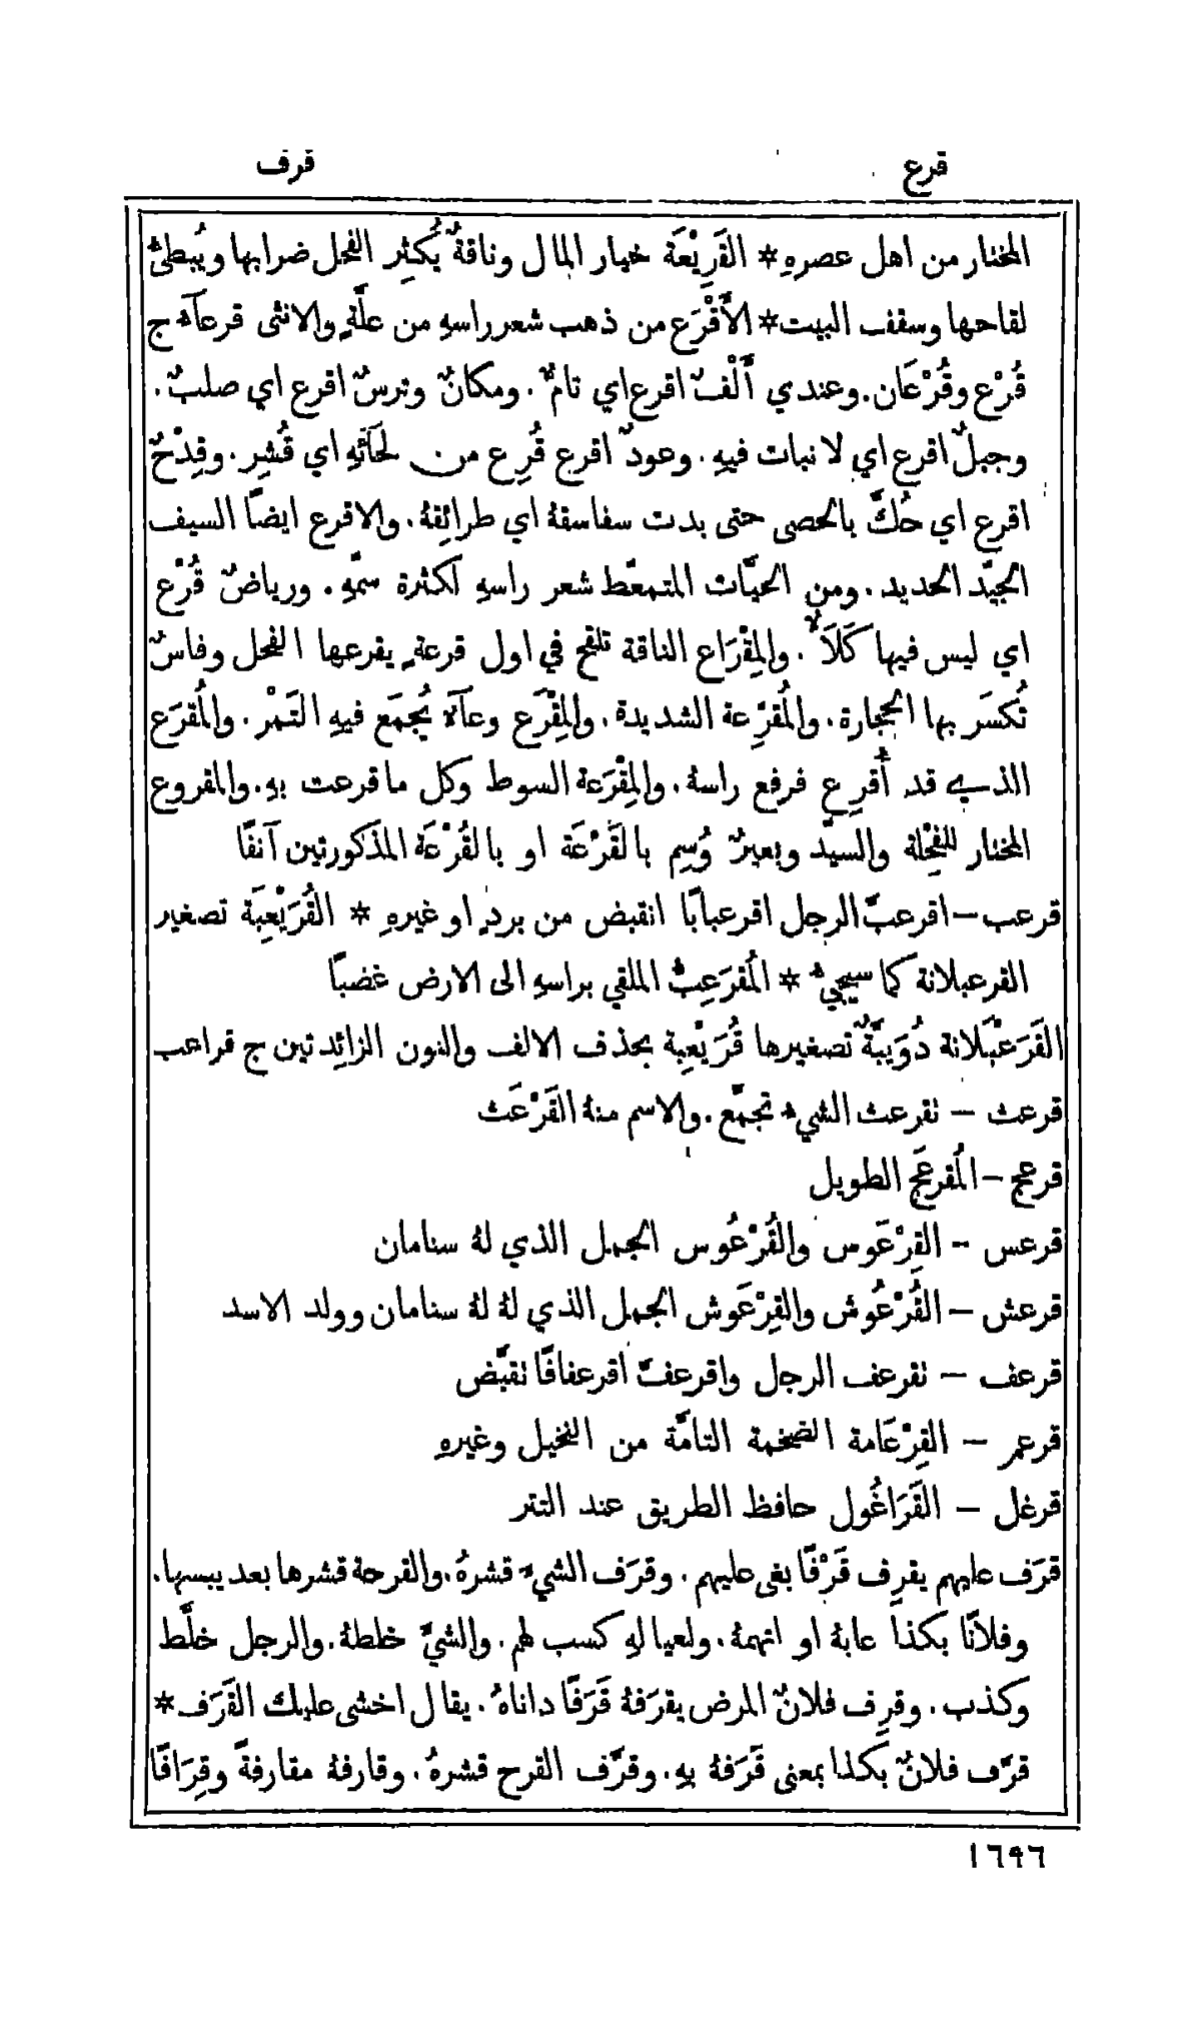 قرع
قرف
المختار من اهل عصرهِ * القَرِيْعَة خيار المال وناقةٌ يُكثِر الفحل ضرابها ويُبطئُ
لقاحها وسقف البيت * الأَقْرَع من ذهب شعر راسهِ من علَّةٍ والانثى قرعآء ج
قُرْع وقُرْعَان. وعندي أَلْفٌ اقرع اي تامٌّ. ومكانٌ وترسٌ اقرع اي صلبٌ.
وجبلٌ اقرع اي لا نبات فيهِ. وعودٌ اقرع قُرِع من لحآئهِ اي قُشِر. وقِدْحٌ
اقرع اي حُكَّ بالحصى حتى بدت سفاسقهُ اي طرائِقهُ. والاقرع ايضًا السيف
الجيّد الحديد. ومن الحيَّات المتمعّط شعر راسهِ لكثرة سمّهِ. ورياضٌ قُرْع
اي ليس فيها كَلَأٌ. والمِقْرَاع الناقة تلقح في اول قرعةٍ يقرعها الفحل وفاسٌ
تُكسَر بها الحجارة. والمُقرِّعة الشديدة. والمِقْرَع وعآءٌ يُجمَع فيهِ التَمْر. والمُقرَع
الذي قد أُقرِع فرفع راسهُ. والمِقْرَعة السوط وكل ما قرعت بهِ. والمقروع
المختار للفِحْلة والسيّد وبعيرٌ وُسِم بالقَرْعَة او بالقُرْعَة المذكورتين آنفًا
قرعب – اقرعبَّ الرجل اقرعبابًا انقبض من بردٍ او غيرهِ * القُرَيْعِبَة تصغير
القرعبلانة كما سيجيءُ * المُقرَعِبُّ الملقي براسهِ الى الارض غضبًا
القَرَعْبَلانة دُوَيبَّةٌ تصغيرها قُرَيْعِبة بحذف الالف والنون الزائِدتين ج قراعب
قرعث – تقرعث الشيء تجمَّع. والاسم منهُ القَرْعَث
قرعج – المُقرعَج الطويل
قرعس – القِرْعَوس والقُرْعُوس الجمل الذي لهُ سنامان
قرعش – القُرْعُوش والقِرْعَوش الجمل الذي لهُ لهُ سنامان وولد الاسد
قرعف – تقرعف الرجل واقرعفَّ اقرعفافًا تقبَّض
قرعمر – القِرْعَامة الضخمة التامَّة من النخيل وغيرهِ
قرغل – القَرَاغُول حافظ الطريق عند التتر
قرَف عليهم يقرِف قَرْفًا بغى عليهم. وقرَف الشيءَ قشرهُ. والقرحة قشرها بعد يبسها.
وفلانًا بكذا عابهُ او اتهمهُ. ولعيالهِ كسب لهم. والشيَّ خلطهُ. والرجل خلَّط
وكذب. وقرِف فلانٌ المرض يقرَفهُ قَرَفًا داناهُ. يقال اخشى عليك القَرَف *
قرَّف فلانٌ بكذا بمعنى قَرَفهُ بهِ. وقرَّف القرح قشرهُ. وقارفهُ مقارفةً وقِرَافًا
١٦٩٦